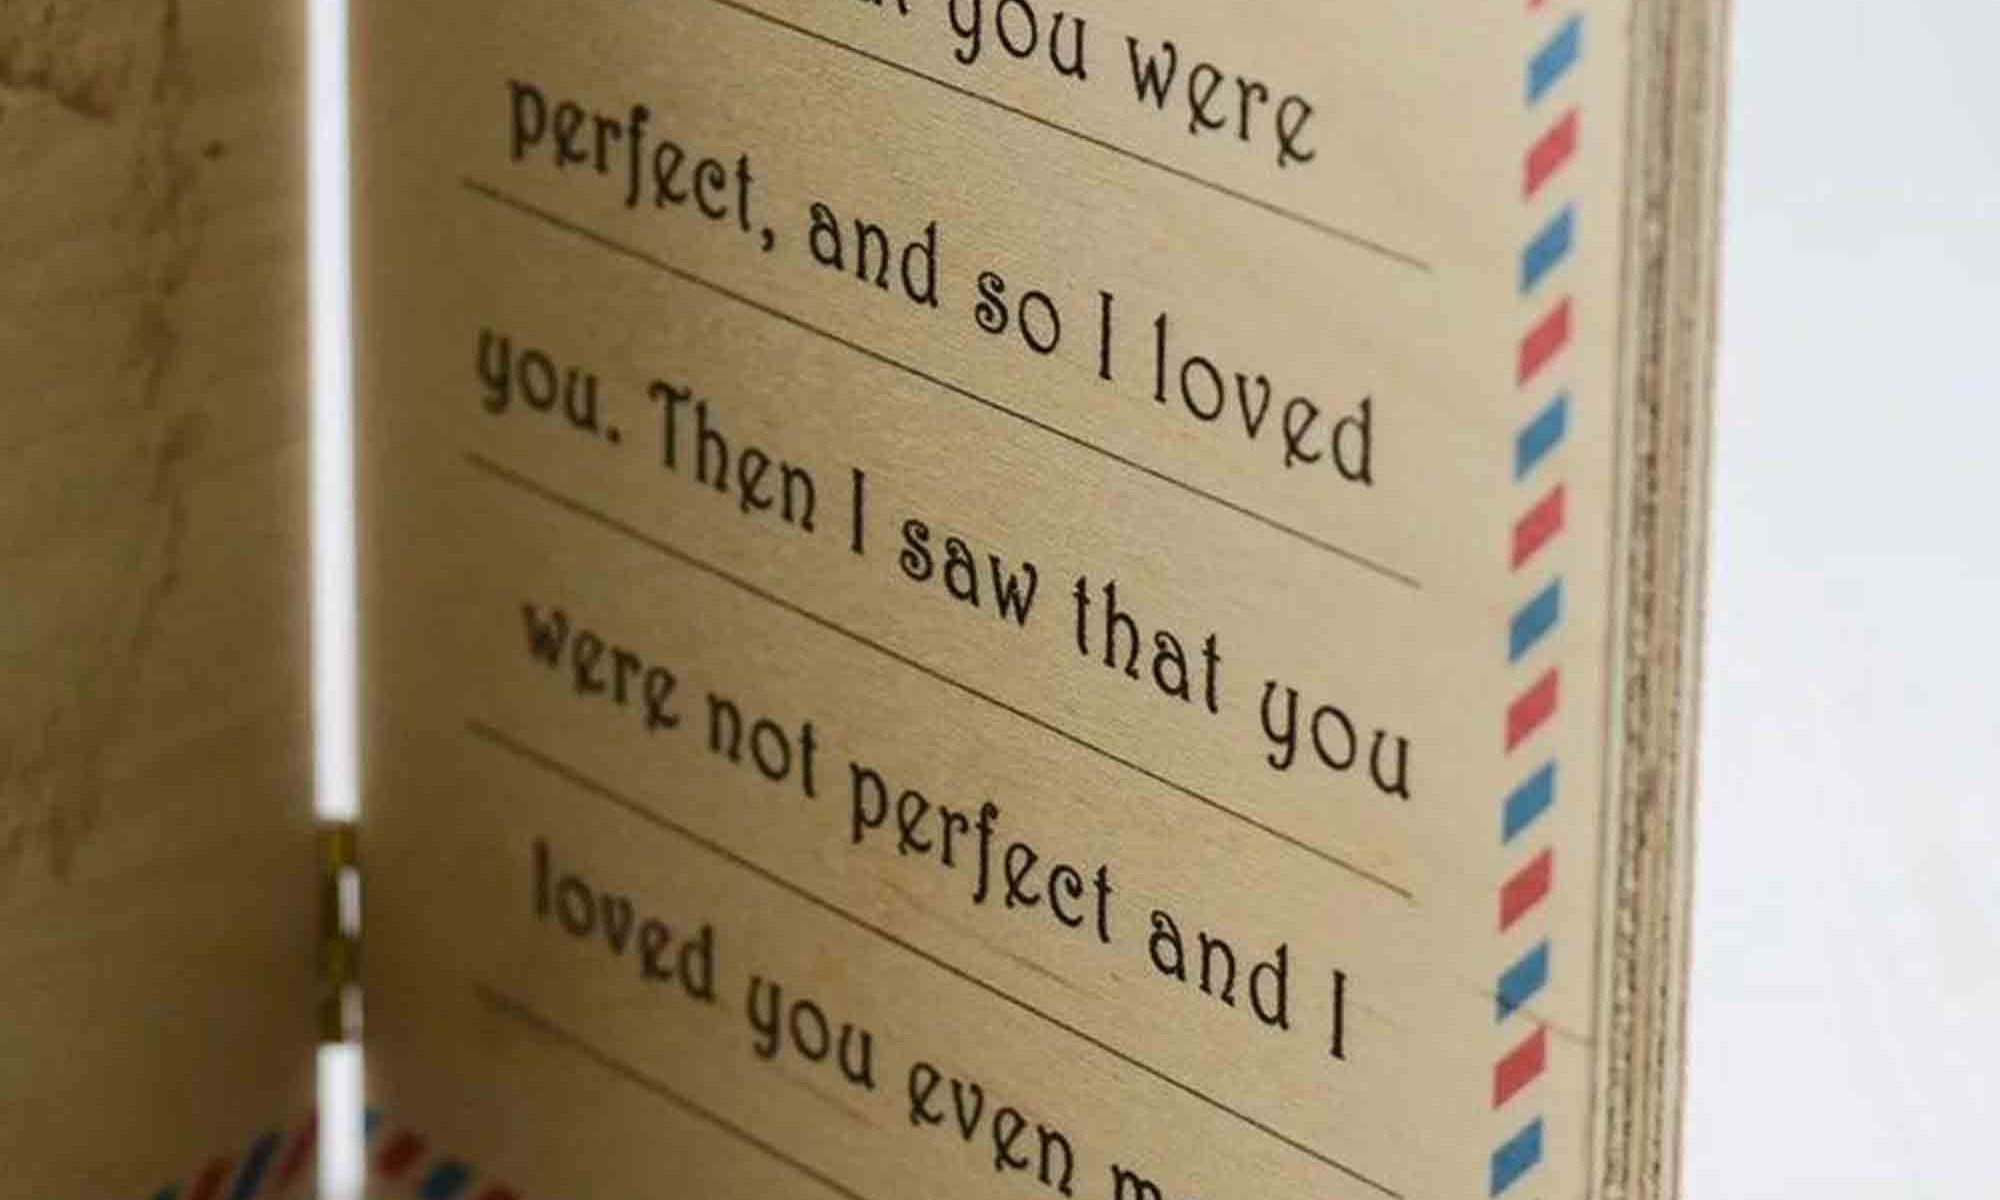 you were
perfect, and so I loved
you. Then I saw that you
were not perfect and I
loved you even